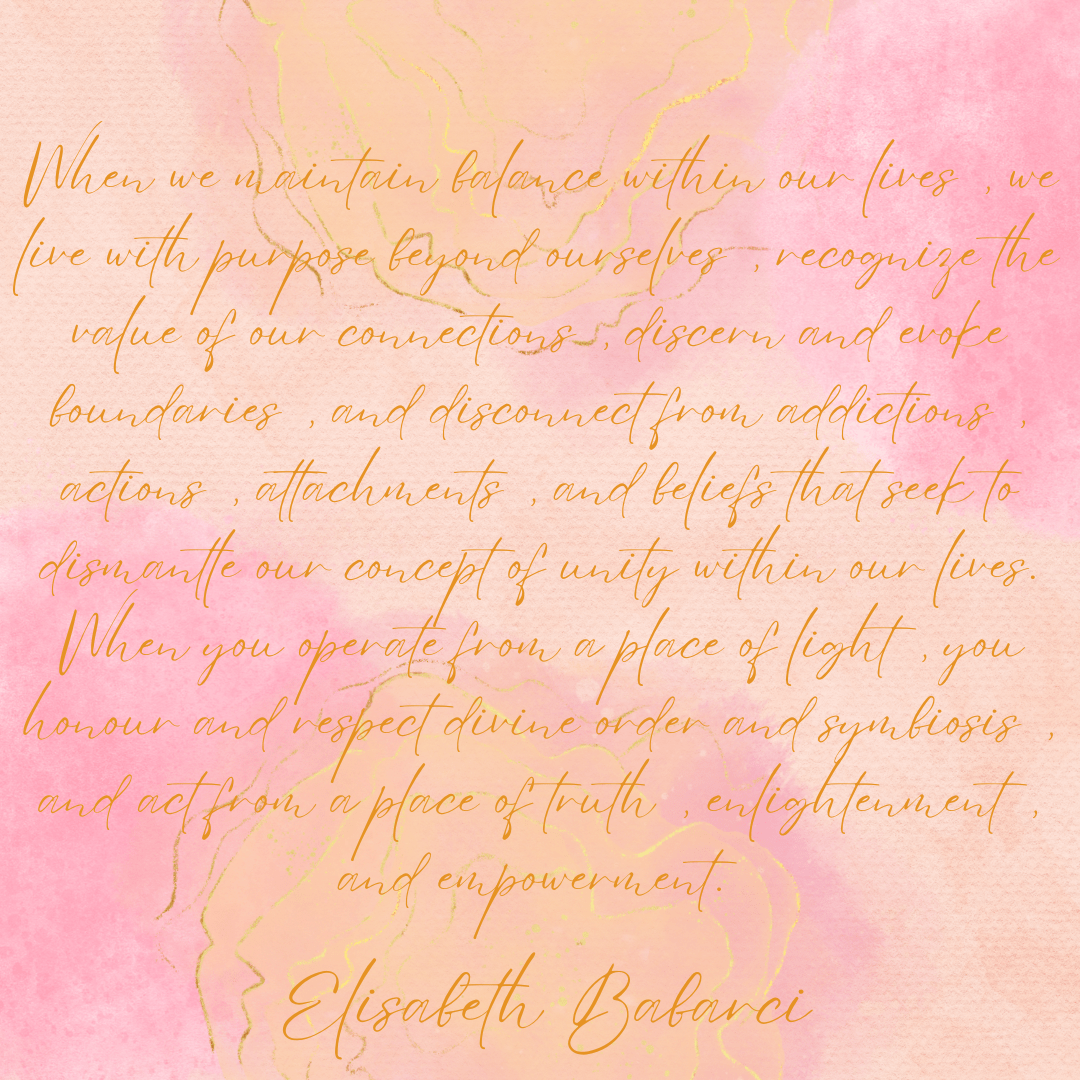 When we maintain balance within our lives , we
live with purpose beyond ourselves , recognize the
value of our connections , discern and evoke
boundaries , and disconnect from addictions ,
actions , attachments , and beliefs that seek to
dismantle our concept of unity within our lives.
When you operate from a place of light , you
honour and respect divine order and symbiosis ,
and act from a place of truth , enlightenment ,
and empowerment.
Elisabeth Babarci